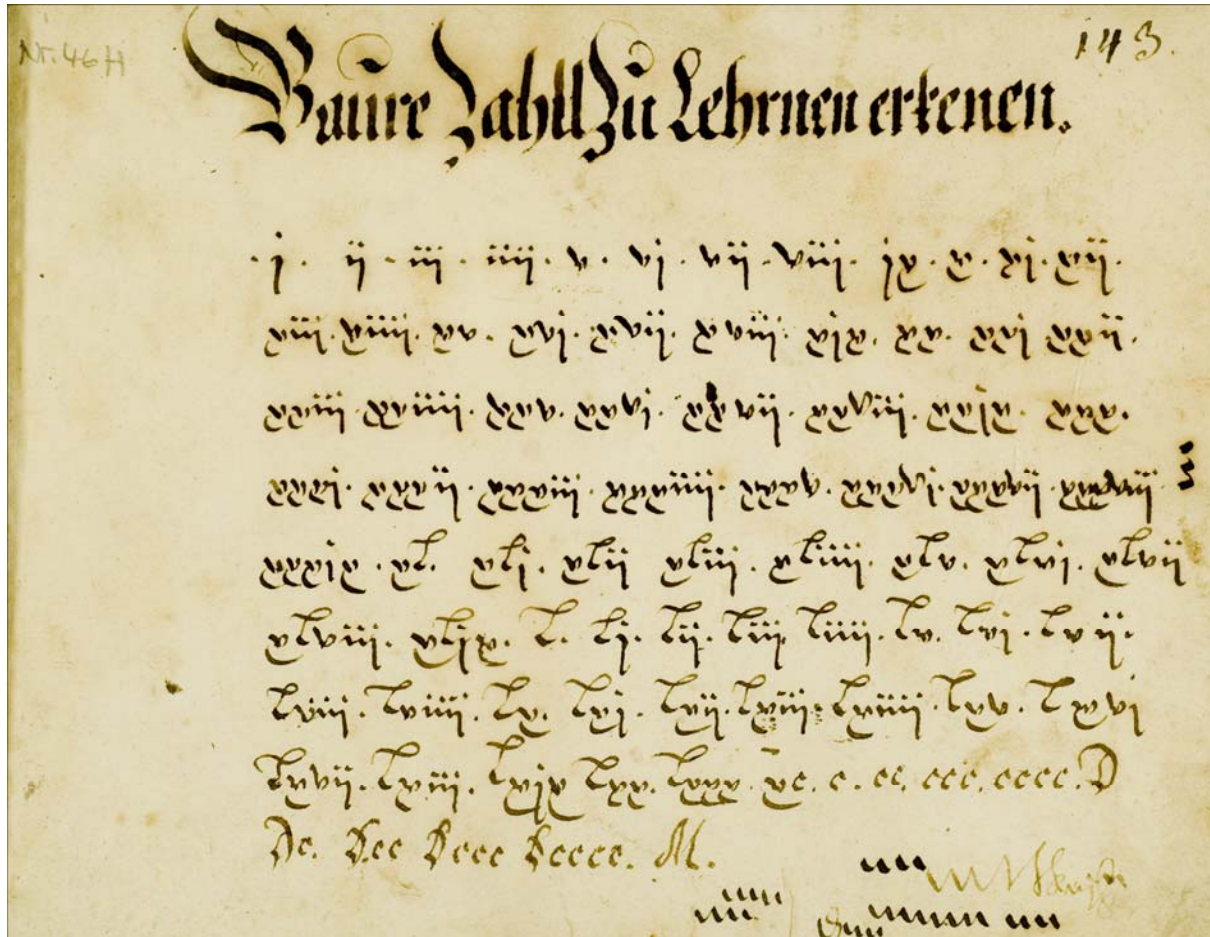 Nr. 46 H
143.
Baure Zahll Zu Lehrnen erkenen.
·j· ij · iij · iiij · v · vj · vij · viij · jx · x · xj · xij ·
xiij · xiiij · xv · xvj · xvij · xviij · xjx · xx · xxj xxij ·
xxiij · xxiiij · xxv · xxvj · xxvij · xxviij · xxjx · xxx ·
xxxj · xxxij · xxxiij · xxxiiij · xxxv · xxxvj · xxxvij · xxxviij
xxxjx · xl · xlj · xlij xliij · xliiij · xlv · xlvj · xlvij
xlviij · xljx · l · lj · lij · liij liiij · lv · lvj · lvij ·
lviij · lviiij · lx · lxj · lxij · lxiij · lxiiij · lxv · lxvj
lxvij · lxviij · lxjx lxx · lxxx · xc. c. cc. ccc. cccc. D
Dc. Dcc Dccc Dcccc. M.